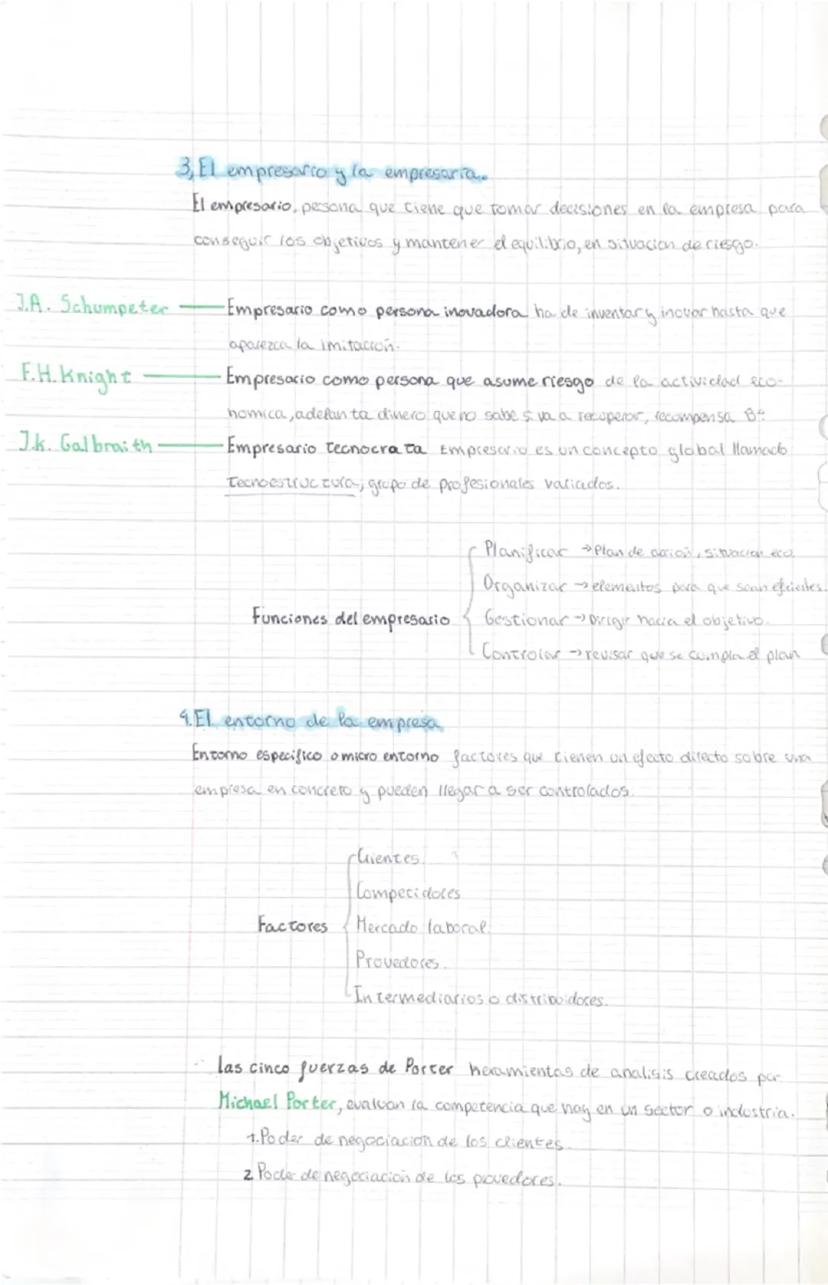 3, El empresario y la empresaria.
El empresario, persona que tiene que tomar decisiones en la empresa para
conseguir los objetivos y mantener el equilibrio, en situacion de riesgo.
J.A. Schumpeter — Empresario como persona inovadora ha de inventar y inovar hasta que
aparezca la imitación.
F.H. Knight — Empresario como persona que asume riesgo de la actividad eco-
nomica, adelanta dinero que no sabe si va a recuperar, recompensa
J.K. Galbraith — Empresario tecnocrata Empresario es un concepto global llamado
Tecnoestructura, grupo de profesionales variados.
Planificar → Plan de acción, situacion eco.
Organizar → elementos para que sean eficientes.
Funciones del empresario
Gestionar → Dirigir hacia el objetivo.
Controlar → revisar que se cumpla el plan
4. El entorno de la empresa
Entorno especifico o micro entorno factores que tienen un efecto directo sobre una
empresa en concreto y pueden llegar a ser controlados.
Clientes.
Competidores
Factores
Mercado laboral.
Provedores.
Intermediarios o distribuidores.
- las cinco fuerzas de Porter heramientas de analisis creados por
Michael Porter, evaluan la competencia que hay en un sector o industria.
1. Poder de negociacion de los clientes
2 Poder de negociacion de los provedores.